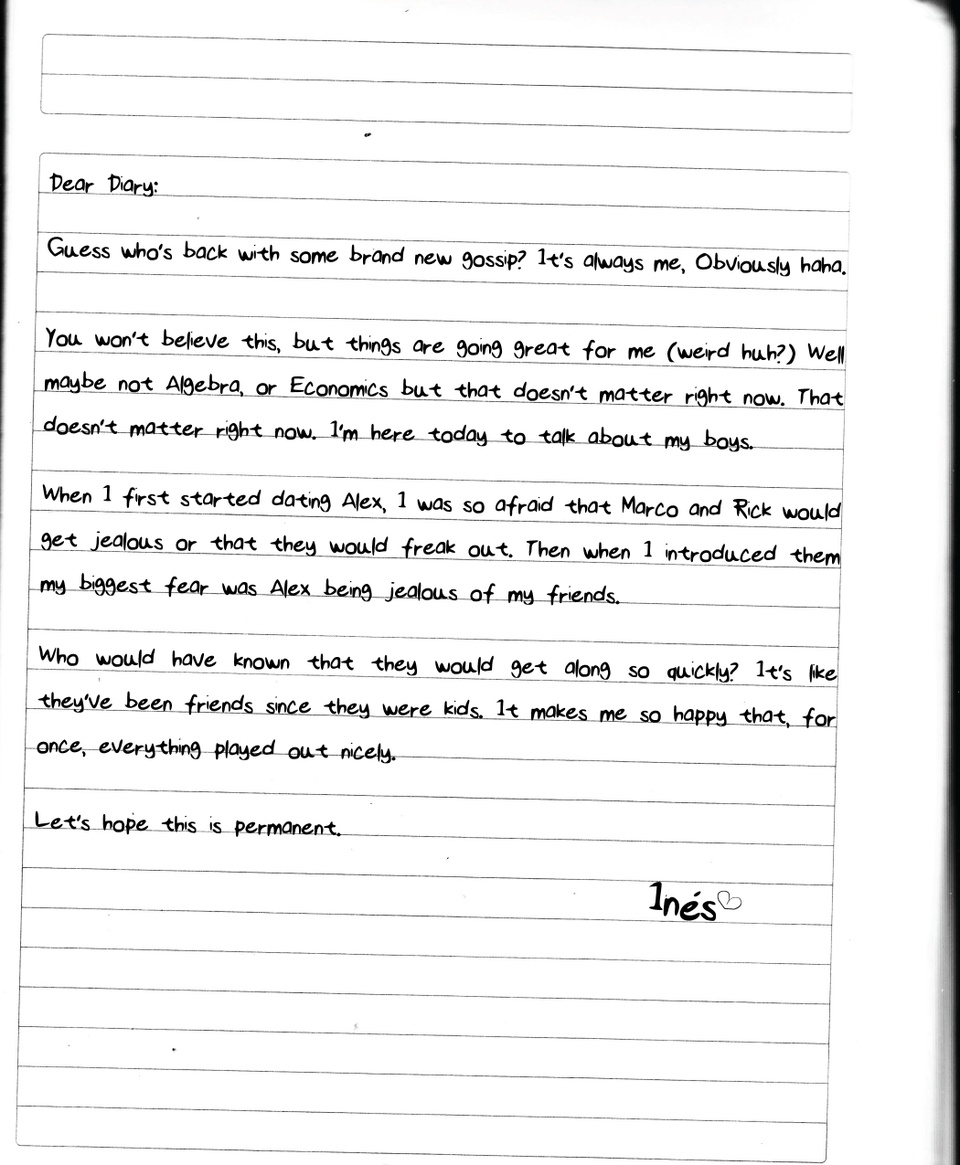 Dear Diary:
Guess who's back with some brand new gossip? It's always me, Obviously haha.
You won't believe this, but things are going great for me (weird huh?) Well
maybe not Algebra, or Economics but that doesn't matter right now. That
doesn't matter right now. I'm here today to talk about my boys.
When I first started dating Alex, I was so afraid that Marco and Rick would
get jealous or that they would freak out. Then when I introduced them
my biggest fear was Alex being jealous of my friends.
Who would have known that they would get along so quickly? It's like
they've been friends since they were kids. It makes me so happy that, for
once, everything played out nicely.
Let's hope this is permanent.
Inés